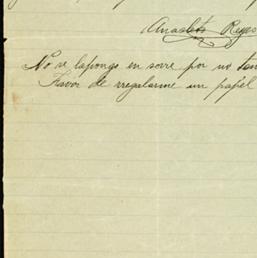 Anacleto Reyes
No se la pongo en sovre por no ten
Favor de rregalarme un papel